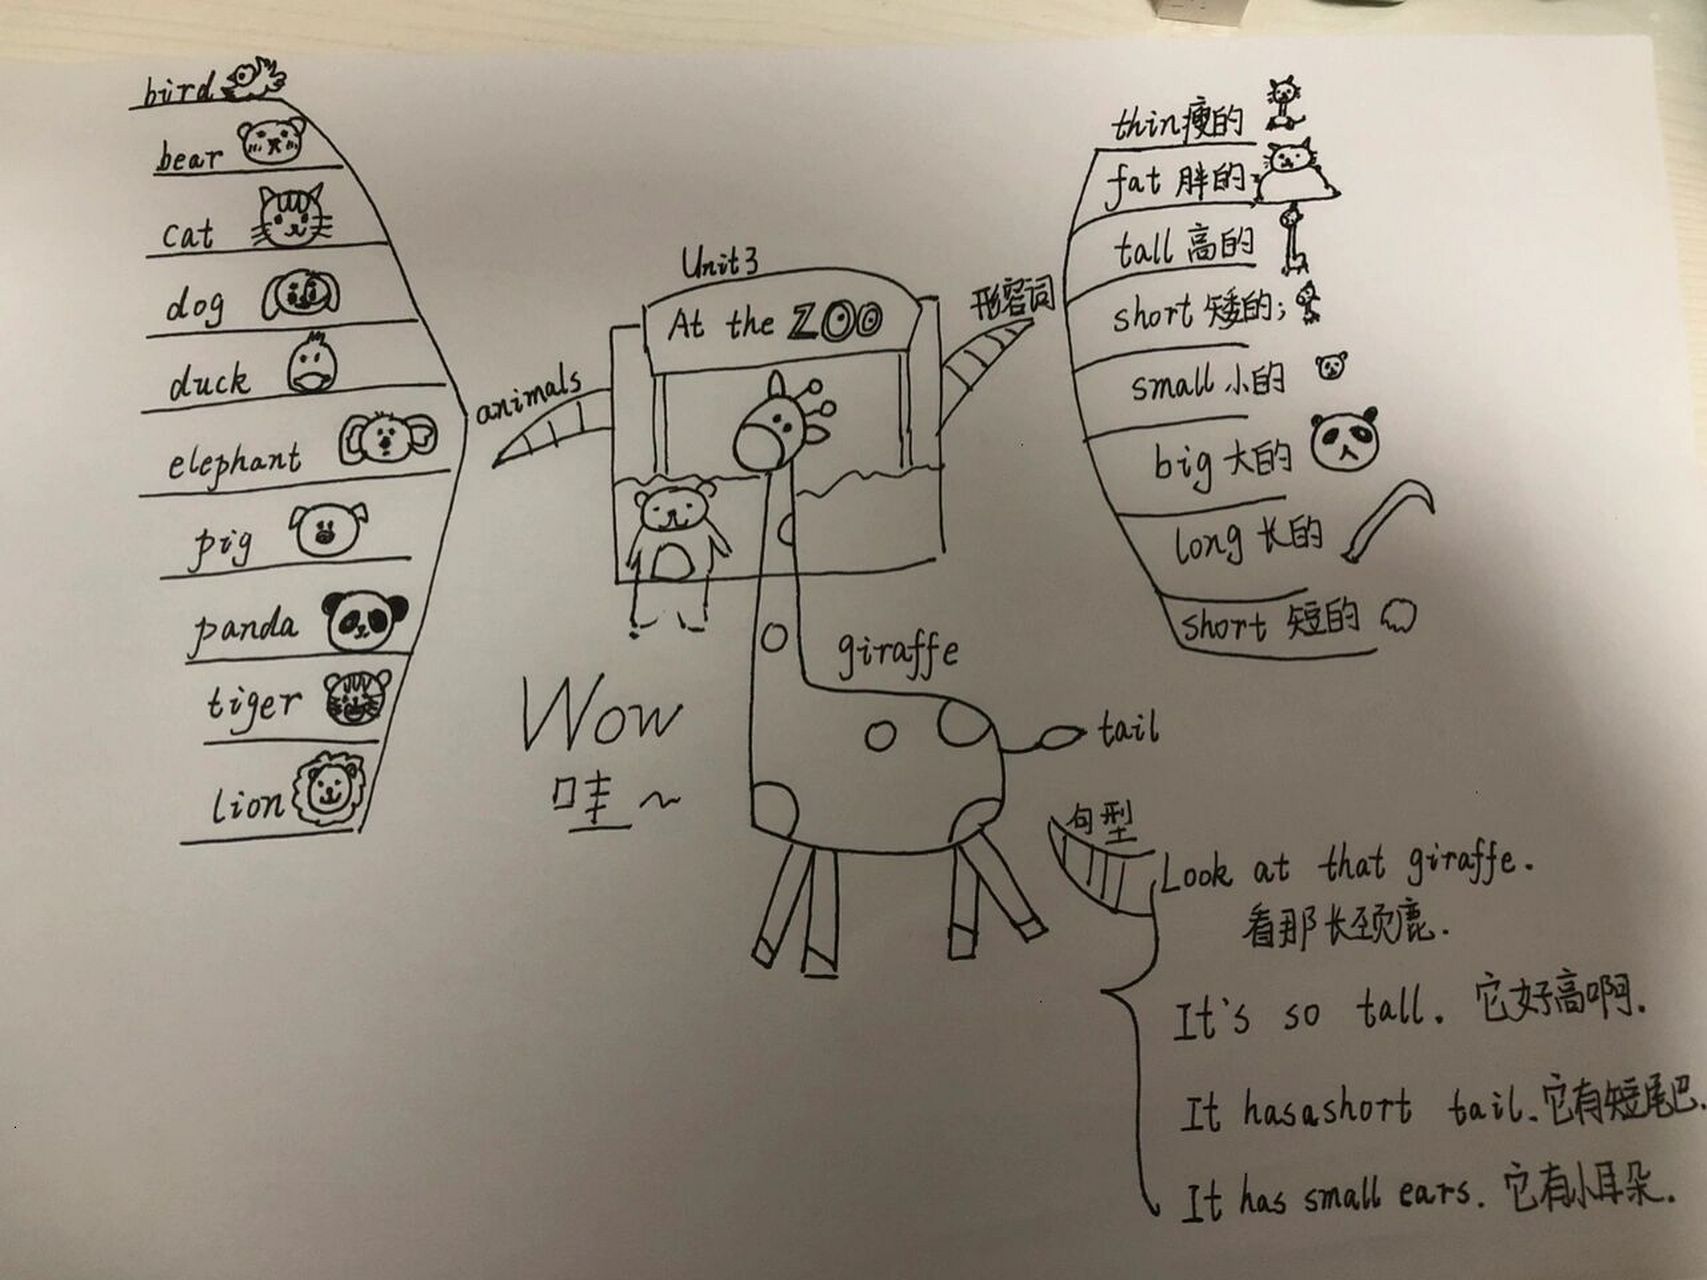 Unit3
At the ZOO
animals
bird
bear
cat
dog
duck
elephant
pig
panda
tiger
lion
形容词
thin瘦的
fat 胖的
tall 高的
short 矮的;
small 小的
big 大的
long 长的
short 短的
giraffe
tail
Wow
哇~
句型
Look at that giraffe.
看那长颈鹿.
It's so tall. 它好高啊.
It has a short tail. 它有短尾巴.
It has small ears. 它有小耳朵.